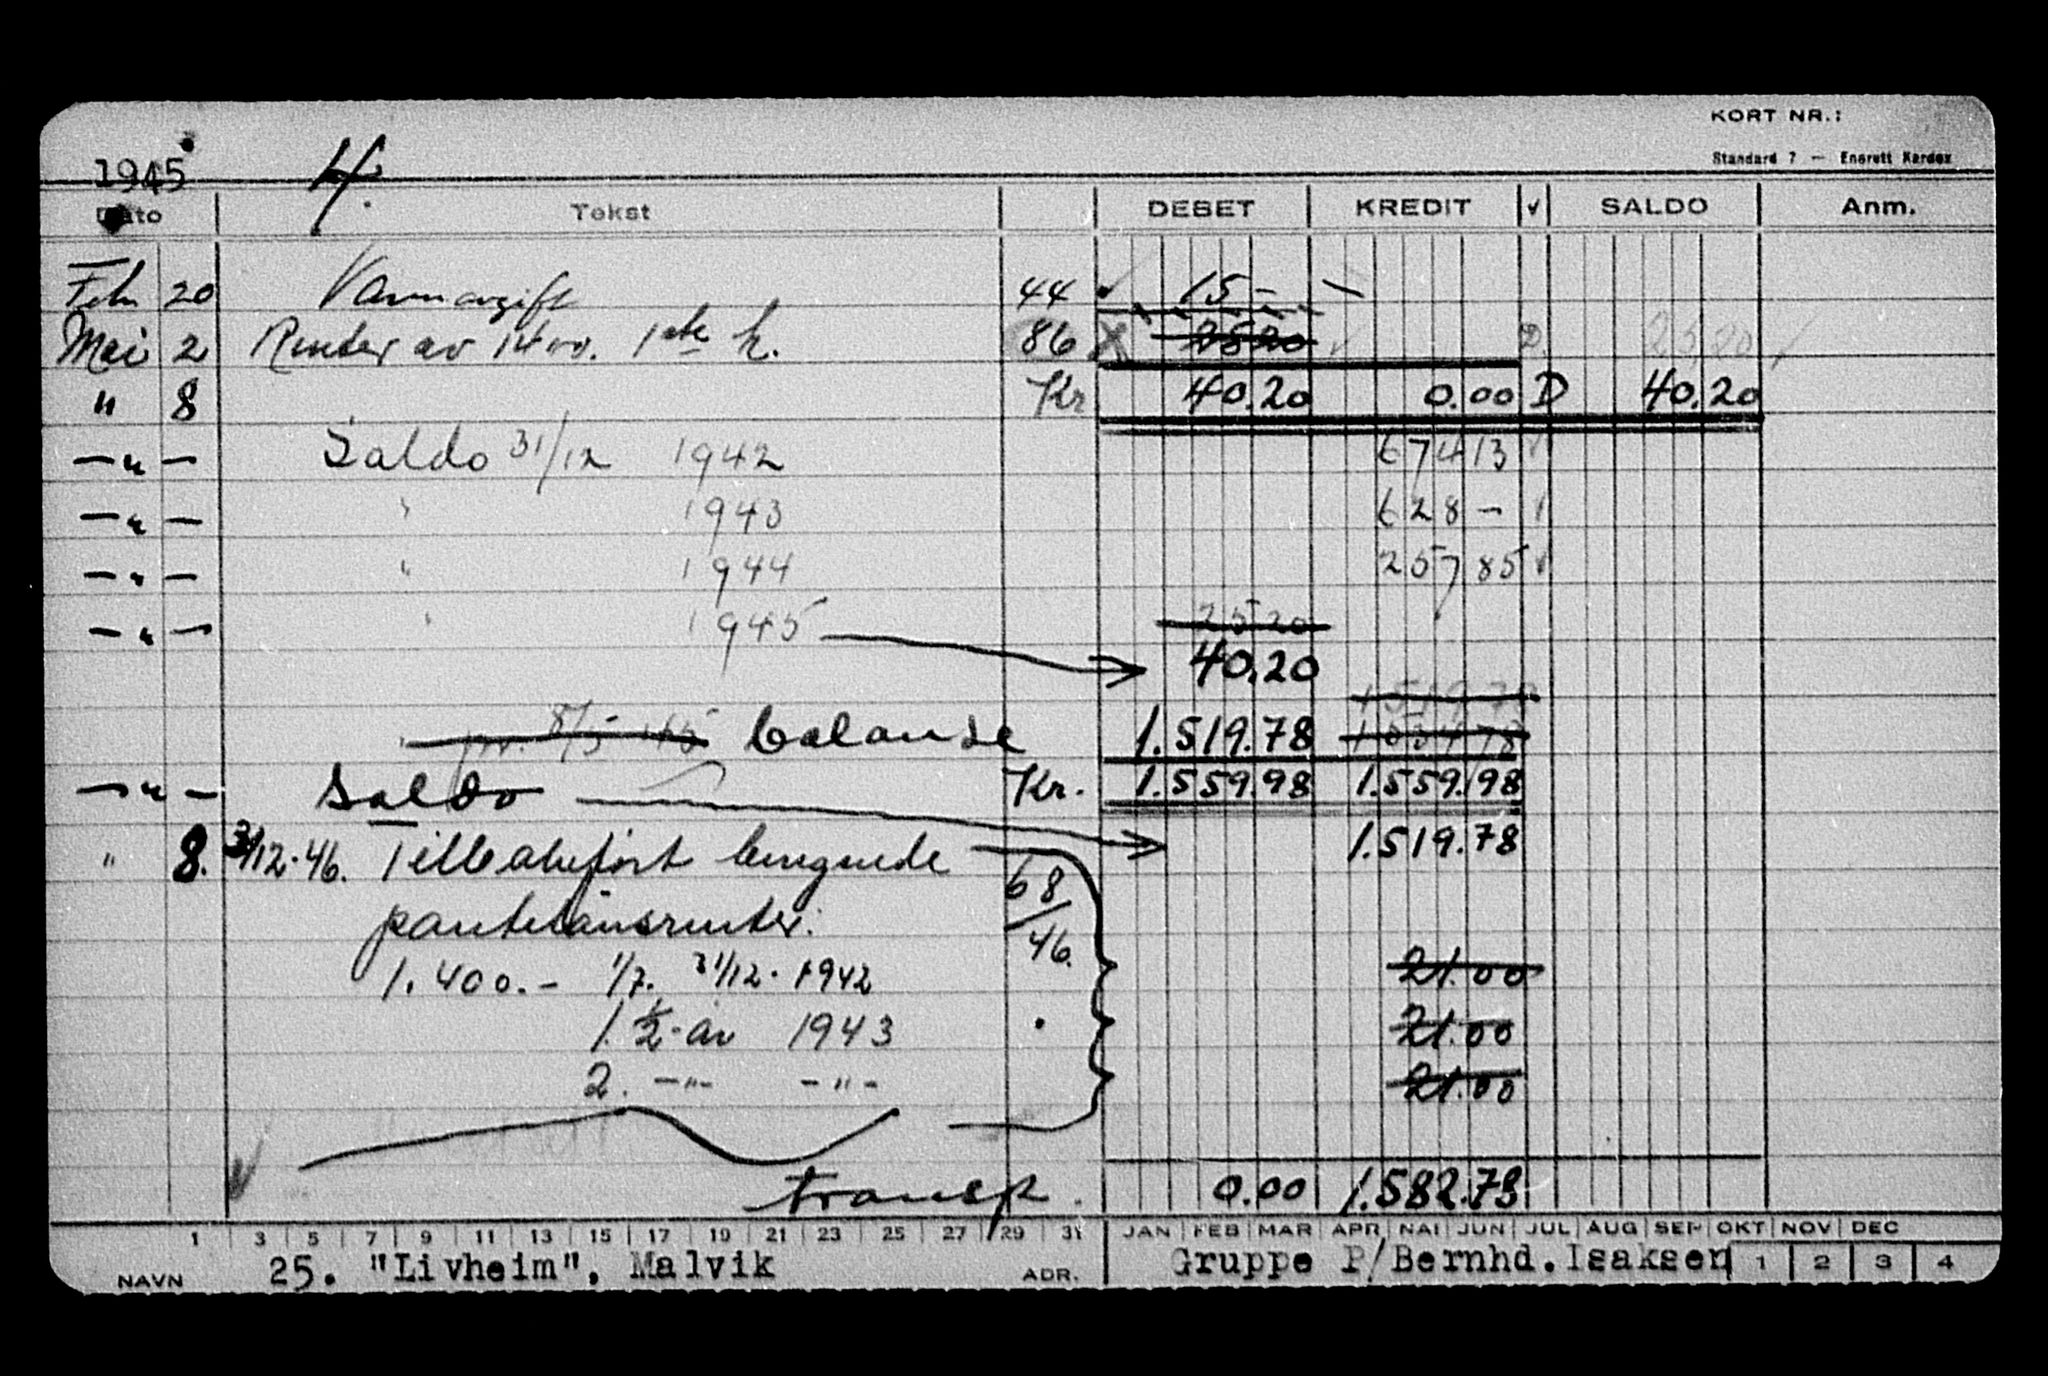 KORT NR.:
Standard 7 — Enerett Kardex
1945 4.
Dato Tekst DEBET KREDIT √ SALDO Anm.
Feb 20 Vannavgift 44 ✓ 15 -
Mai 2 Renter av 1400. 1ste h. 86 2520 D. 2520 ✓
" 8 Kr 40.20 0.00 D 40.20
—"— Saldo 31/12 1942 67413 ✓
—"— " 1943 628 - ✓
—"— " 1944 25785 ✓
—"— " 1945 2520
40.20
1519.78
" pr. 8/5 45 balanse 1.519.78 153478
—"— Saldo Kr. 1.559.98 1.559.98
" 8. 31/12.46. Tilbakeført beregnede 1.519.78
pantelånsrenter. 68/46.
1.400.- 1/7. 31/12. 1942 21.00
1. ½-år 1943 21.00
2. —"— —"— 21.00
transp. 0.00 1.582.78
1 3 5 7 9 11 13 15 17 19 21 23 25 27 29 31 JAN FEB MAR APR MAI JUN JUL AUG SEP OKT NOV DEC
NAVN 25. "Livheim", Malvik ADR. Gruppe P/Bernhd.Isaksen 1 2 3 4